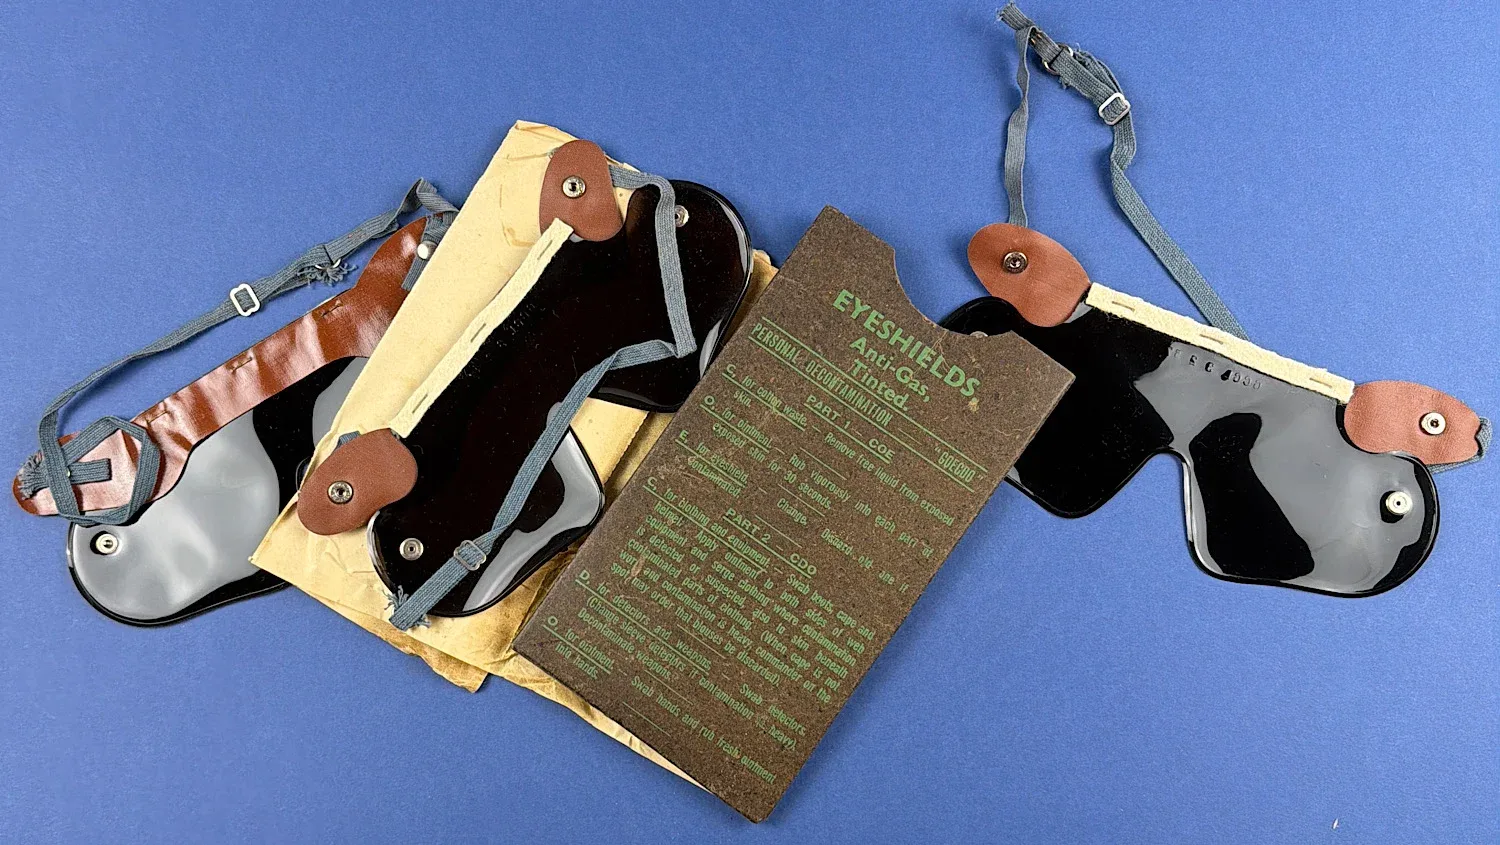 EYESHIELDS,
Anti-Gas,
Tinted.
PERSONAL DECONTAMINATION "COECDO
PART 1 COE
C. for cotton waste. Remove free liquid from exposed
skin.
O. for ointment. Rub vigorously into each part of
exposed skin for 30 seconds.
E. for Eyeshield. Change. Discard old one if
contaminated.
PART 2 CDO
C. for clothing and equipment.—Swab boots, cape and
helmet. Apply ointment to both sides of web
equipment and serge clothing where contamination
is detected or suspected, also to skin beneath
contaminated parts of clothing. (When cape is not
worn and contamination is heavy, commander on the
spot may order that blouses be discarded).
D. for detectors and weapons.—Swab detectors.
(Change sleeve detectors if contamination is heavy).
Decontaminate weapons.
O. for ointment. Swab hands and rub fresh ointment
into hands.